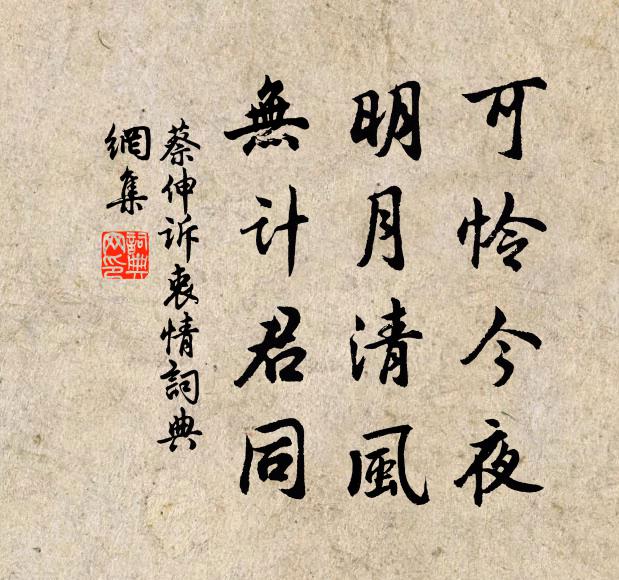 可怜今夜
明月清風
無计君同
蔡伸诉衷情詞典
網集
詞典
网印